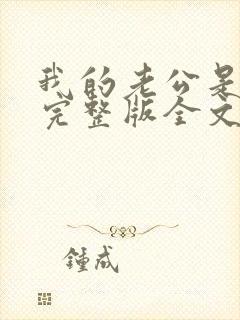 我的老公是
完整版全文
鍾成